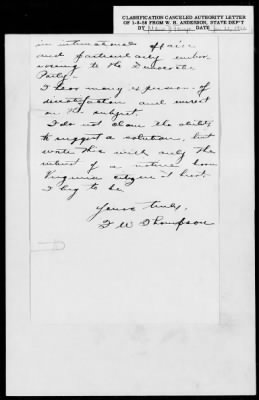 CLASSIFICATION CANCELLED AUTHORITY LETTER
OF 1-8-58 FROM W. H. ANDERSON, STATE DEP'T
BY
in international
and particularly embar
rassing to the Democratic
Party.
I hear many expressions of
dissatisfaction and unrest
on the subject.
I do not claim the ability
to suggest a solution, but
write this with only the
interest of a native born
Virginia citizen at heart
I beg to be
Yours truly,
F W Thompson